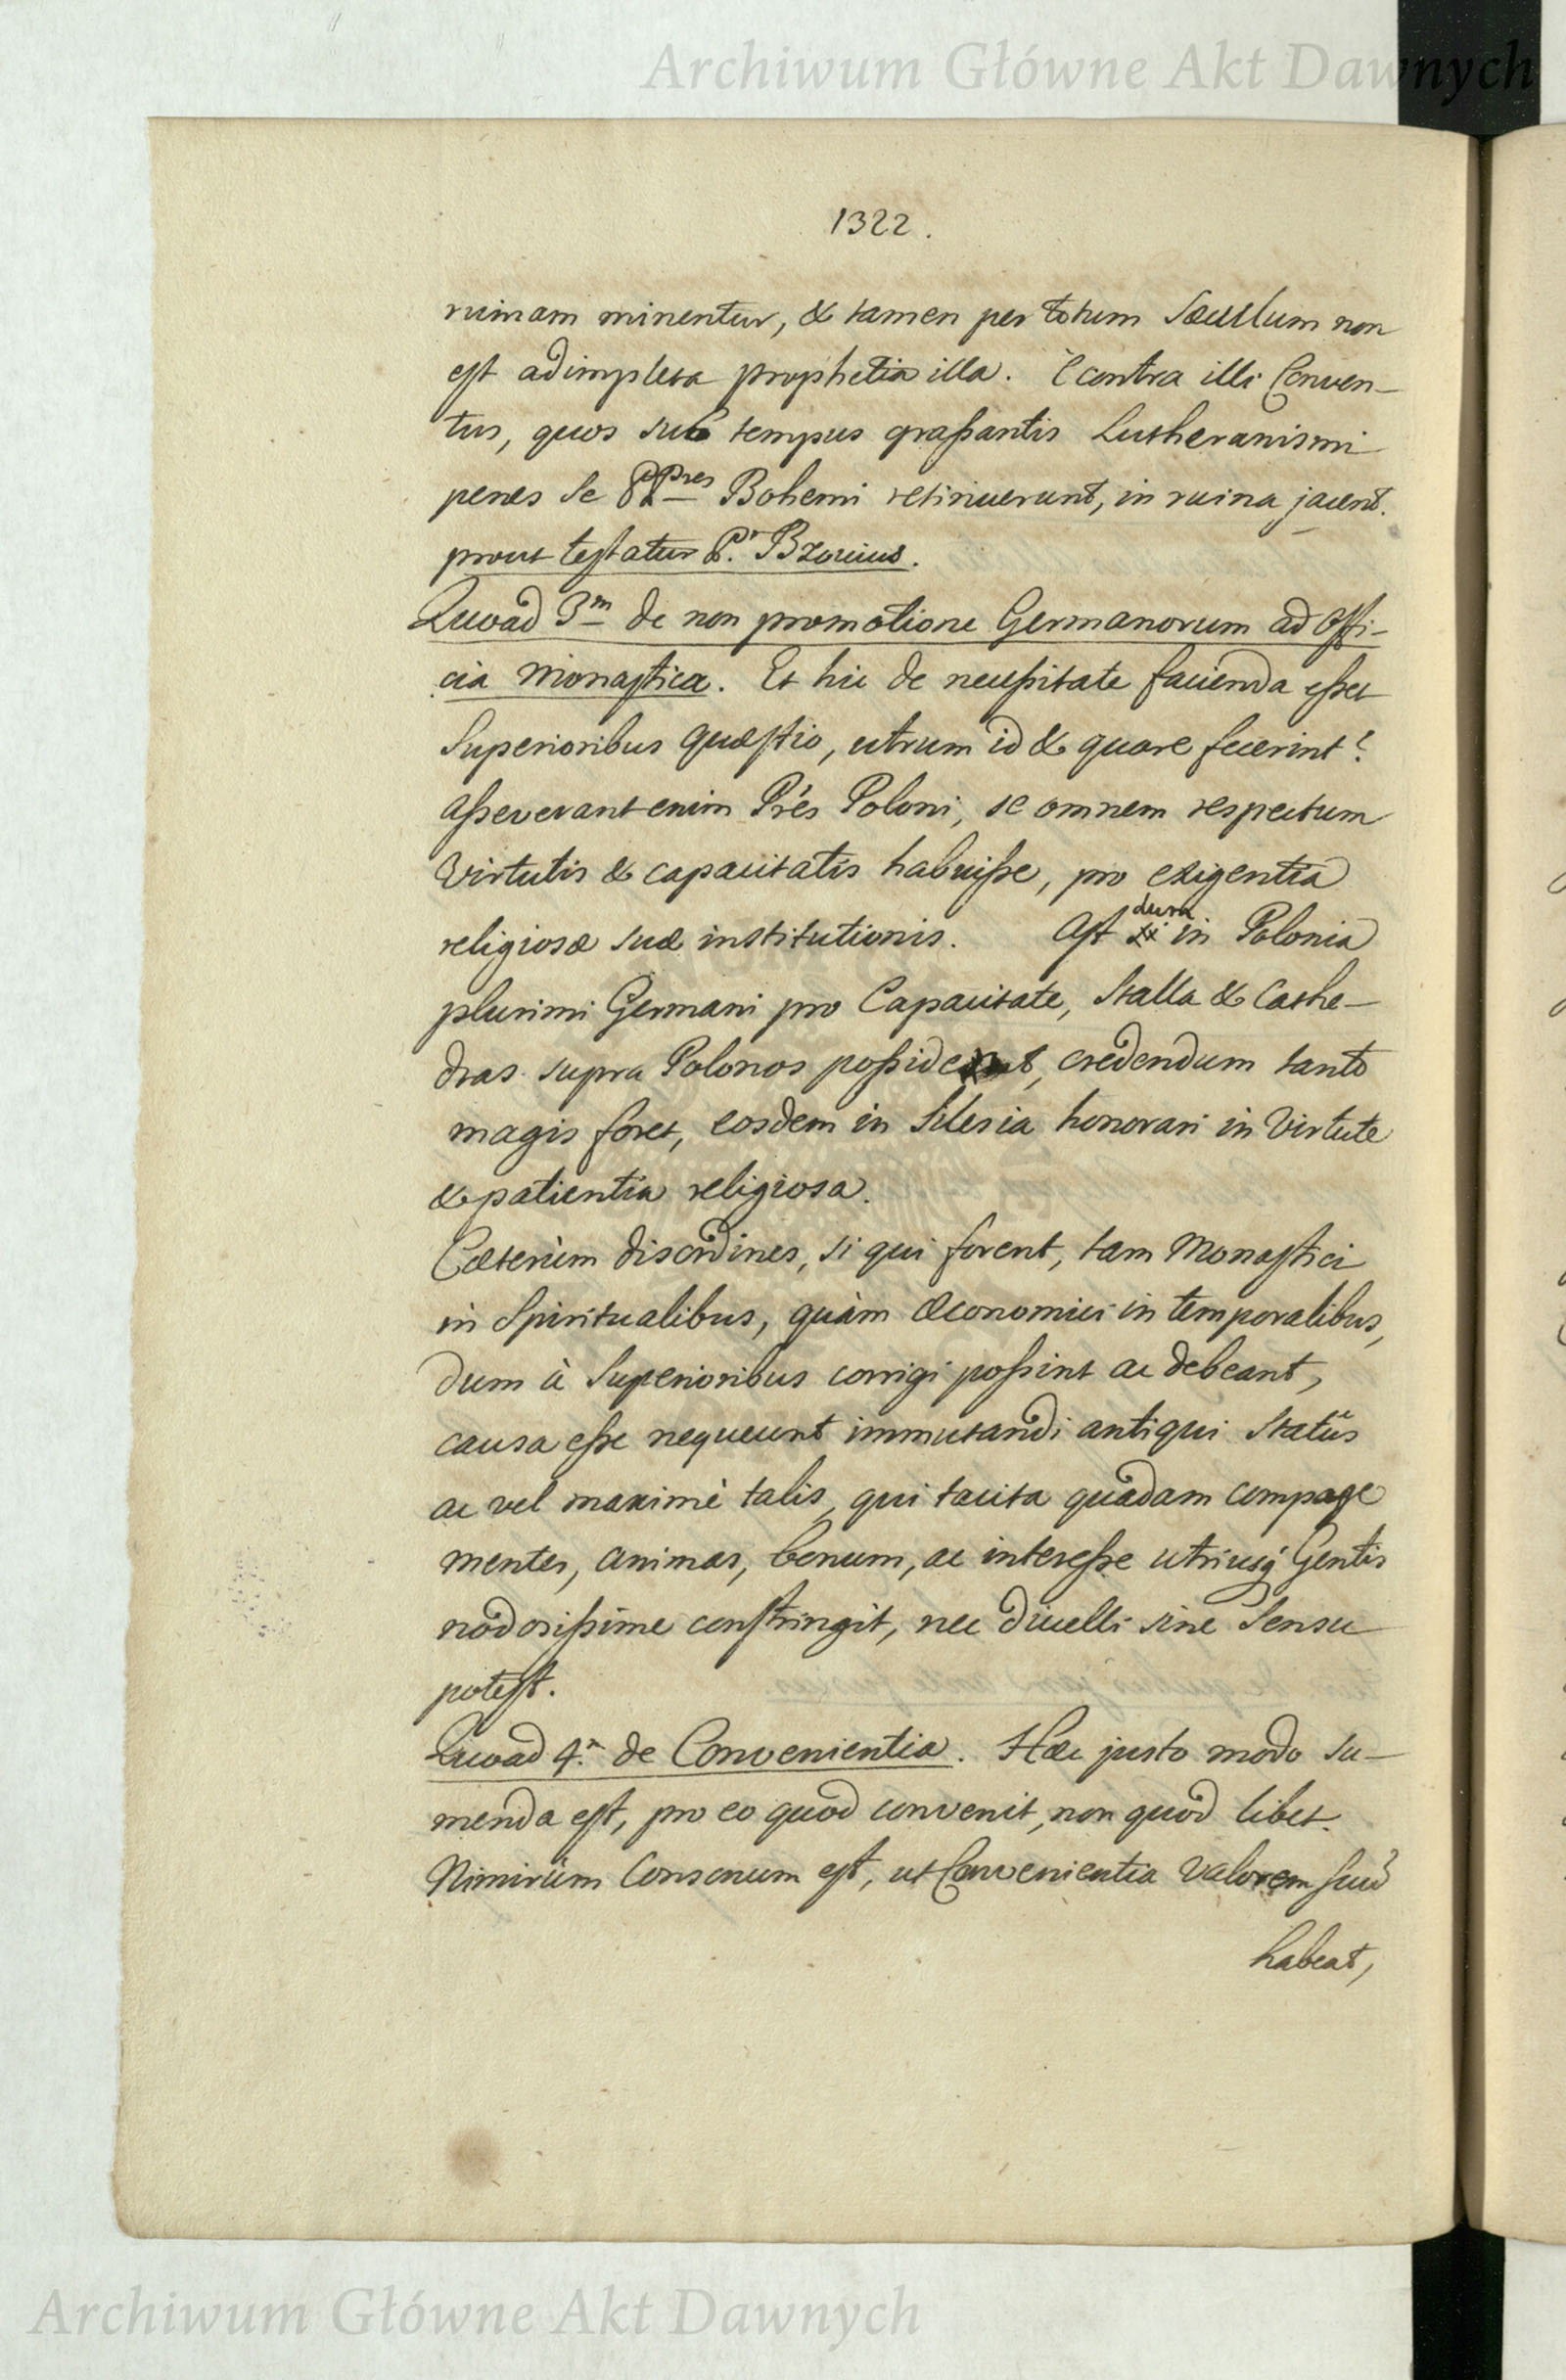 Archiwum Główne Akt Dawnych
1322.
ruinam minentur, & tamen per totum Sæculum non
est adimpleta prophetia illa. È contra illi Conven-
tus, quos sub tempus grassantis Lutheranismi
penes se PPres Bohemi retinuerunt, in ruina jacent.
prout testatur P. Bzovius.
Quoad 3m de non promotione Germanorum ad Offi-
cia Monastica. Et hic de necessitate facienda esset
Superioribus quæstio, utrum id & quare fecerint?
asseverant enim Pres Poloni, se omnem respectum
Virtutis & capacitatis habuisse, pro exigentia
religiosæ suæ institutionis. Ast dum in Polonia
plurimi Germani pro Capacitate, Stalla & Cathe-
dras supra Polonos possident, credendum tanto
magis foret, eosdem in Silesia honorari in Virtute
& patientia religiosa.
Cæterùm disordines, si qui forent, tam Monastici
in Spiritualibus, quàm œconomici in temporalibus,
dum à Superioribus corrigi possint ac debeant,
causa esse nequeunt immutandi antiqui Statûs
ac vel maximè talis, qui tacita quâdam compage
mentes, animas, bonum, ac interesse utriusq Gentis
nodosissime constringit, nec divelli sine Sensu
potest.
Quoad 4m de Convenientia. Hæc justo modo su-
menda est, pro eo quod convenit, non quod libet.
Nimirùm Consonum est, ut Convenientia Valorem suũ
habeat,
Archiwum Główne Akt Dawnych